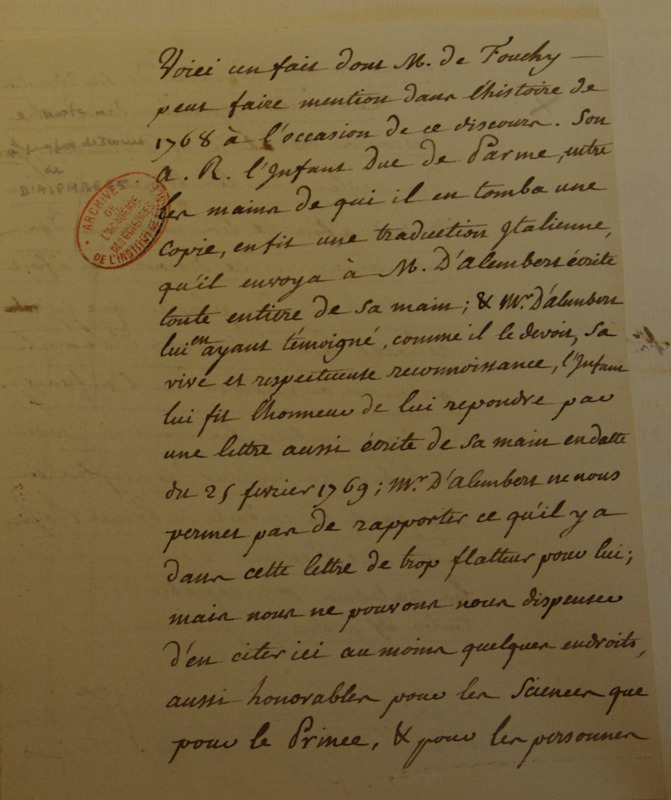 Voici un fait dont M. de Fouchy —
peut faire mention dans l'histoire de
1768 à l'occasion de ce discours. Son
A. R. l'Infant Duc de Parme, entre
les mains de qui il en tomba une
copie, en fit une traduction Italienne,
qu'il envoya à M. D'alembert écrite
toute entière de sa main; & Mr. D'alembert
lui en ayant témoigné, comme il le devoit, sa
vive et respectueuse reconnoissance, l'Infant
lui fit l'honneur de lui repondre par
une lettre aussi écrite de sa main en datte
du 25 fevrier 1769; Mr. D'alembert ne nous
permet pas de rapporter ce qu'il y a
dans cette lettre de trop flatteur pour lui;
mais nous ne pouvons nous dispenser
d'en citer ici au moins quelques endroits,
aussi honorables pour les Sciences que
pour le Prince, & pour les personnes
ARCHIVES
DE
L'ACADÉMIE
DES SCIENCES
DE L'INSTITUT